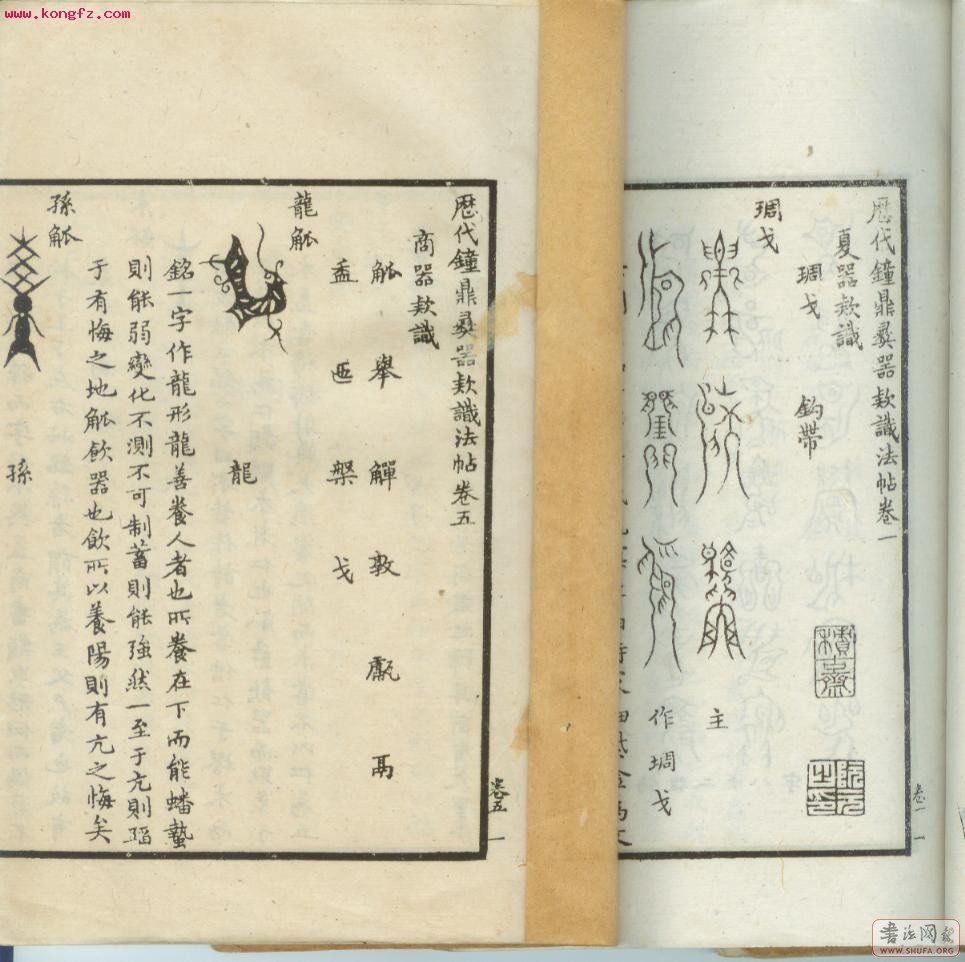 www.kongfz.com
歷代鐘鼎彝器款識法帖卷一
夏器款識
琱戈 鈎帶
琱戈
主
作琱戈
積古齋
卷一 一
歷代鐘鼎彝器款識法帖卷五
商器款識
觚 舉 觶 敦 甗 鬲
盉 匜 槃 戈
龍觚
龍
銘一字作龍形龍善養人者也所養在下而能蟠蟄
則能弱變化不測不可制蓄則能強然一至于亢則蹈
于有悔之地觚飲器也飲所以養陽則有亢之悔矣
孫觚
孫
卷五 一
書法网
WWW.SHUFA.ORG